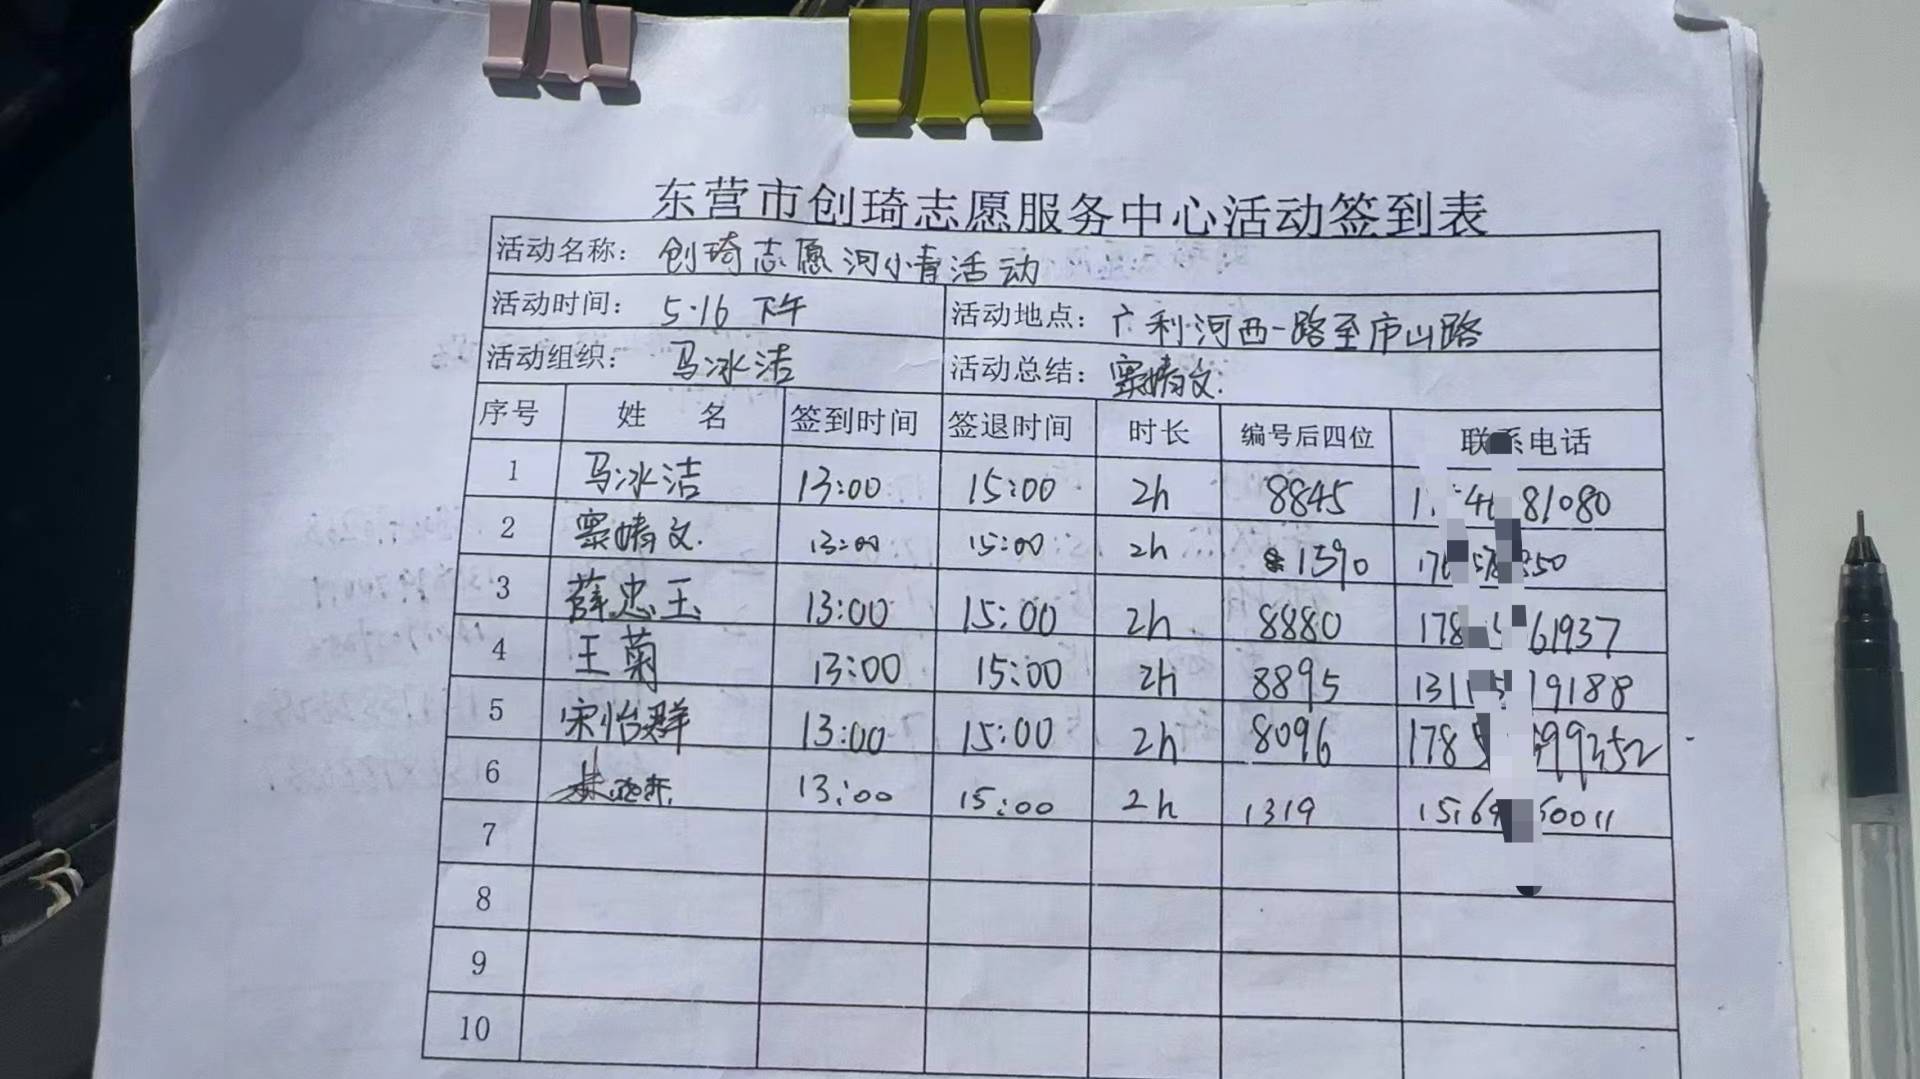 东营市创琦志愿服务中心活动签到表
活动名称: 创琦志愿河小青活动
活动时间: 5.16 下午 活动地点: 广利河西一路至庐山路
活动组织: 马冰洁 活动总结: 窦婧文.
序号 姓 名 签到时间 签退时间 时长 编号后四位 联系电话
1 马冰洁 13:00 15:00 2h 8845
2 窦婧文. 13:00 15:00 2h 1590
3 薛忠玉 13:00 15:00 2h 8880
4 王菊 13:00 15:00 2h 8895
5 宋怡群 13:00 15:00 2h 8096
6 13:00 15:00 2h 1319
7
8
9
10